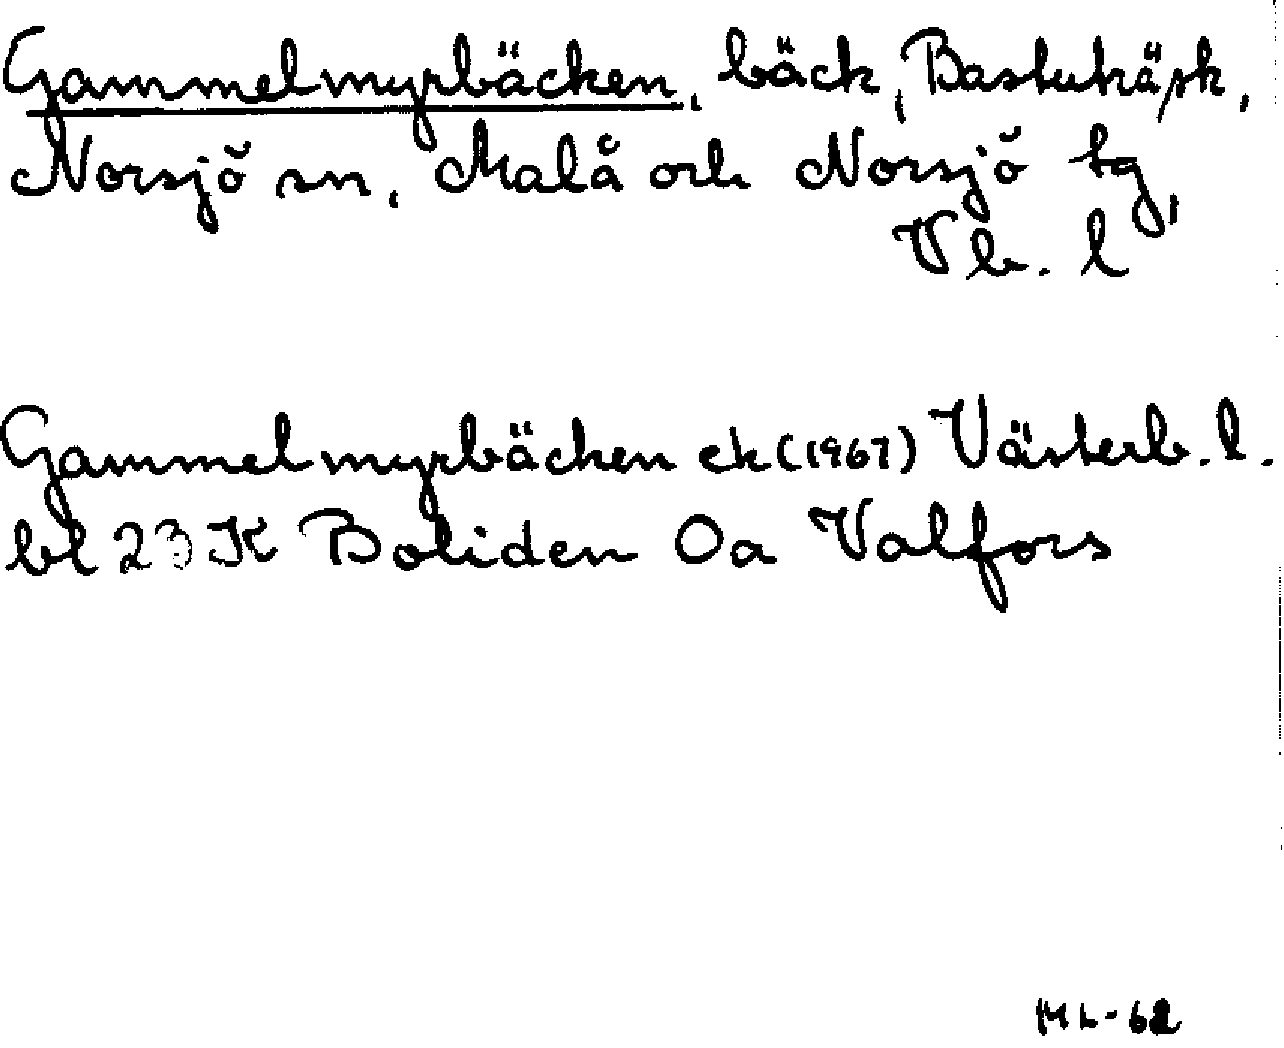 Gammelmyrbäcken, bäck, Bastuträsk,
Norsjö sn, Malå och Norsjö tg,
Vb. l
Gammelmyrbäcken ek (1967) Västerb. l.
bl 23 K Boliden 0a Valfors